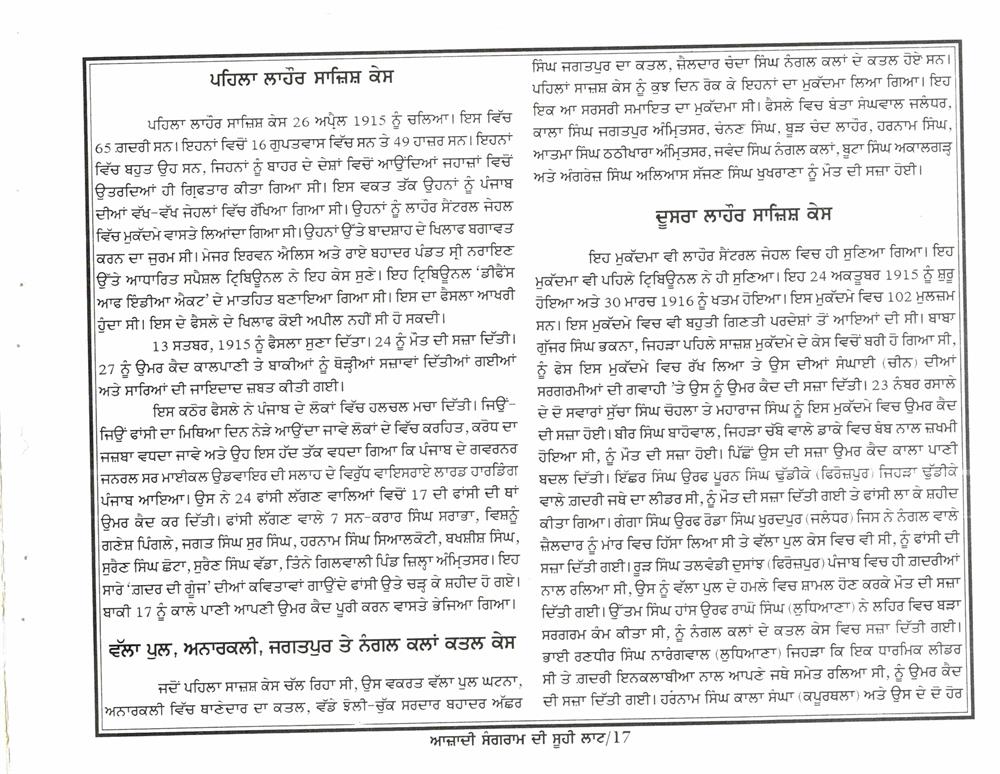 ਪਹਿਲਾ ਲਾਹੌਰ ਸਾਜ਼ਿਸ਼ ਕੇਸ
ਪਹਿਲਾ ਲਾਹੌਰ ਸਾਜ਼ਿਸ਼ ਕੇਸ 26 ਅਪ੍ਰੈਲ 1915 ਨੂੰ ਚਲਿਆ। ਇਸ ਵਿੱਚ
65 ਗ਼ਦਰੀ ਸਨ। ਇਹਨਾਂ ਵਿਚੋਂ 16 ਗੁਪਤਵਾਸ ਵਿੱਚ ਸਨ ਤੇ 49 ਹਾਜ਼ਰ ਸਨ। ਇਹਨਾਂ
ਵਿੱਚ ਬਹੁਤ ਉਹ ਸਨ, ਜਿਹਨਾਂ ਨੂੰ ਬਾਹਰ ਦੇ ਦੇਸ਼ਾਂ ਵਿਚੋਂ ਆਉਂਦਿਆਂ ਜਹਾਜ਼ਾਂ ਵਿਚੋਂ
ਉਤਰਦਿਆਂ ਹੀ ਗ੍ਰਿਫਤਾਰ ਕੀਤਾ ਗਿਆ ਸੀ। ਇਸ ਵਕਤ ਤੱਕ ਉਹਨਾਂ ਨੂੰ ਪੰਜਾਬ
ਦੀਆਂ ਵੱਖ-ਵੱਖ ਜੇਹਲਾਂ ਵਿੱਚ ਰੱਖਿਆ ਗਿਆ ਸੀ। ਉਹਨਾਂ ਨੂੰ ਲਾਹੌਰ ਸੈਂਟਰਲ ਜੇਹਲ
ਵਿੱਚ ਮੁਕੱਦਮੇ ਵਾਸਤੇ ਲਿਆਂਦਾ ਗਿਆ ਸੀ। ਉਹਨਾਂ ਉੱਤੇ ਬਾਦਸ਼ਾਹ ਦੇ ਖਿਲਾਫ ਬਗਾਵਤ
ਕਰਨ ਦਾ ਜੁਰਮ ਸੀ। ਮੇਜਰ ਇਰਵਨ ਐਲਿਸ ਅਤੇ ਰਾਏ ਬਹਾਦਰ ਪੰਡਤ ਸ੍ਰੀ ਨਰਾਇਣ
ਉੱਤੇ ਆਧਾਰਿਤ ਸਪੈਸ਼ਲ ਟ੍ਰਿਬਿਊਨਲ ਨੇ ਇਹ ਕੇਸ ਸੁਣੇ। ਇਹ ਟ੍ਰਿਬਿਊਨਲ ‘ਡੀਫੈਂਸ
ਆਫ ਇੰਡੀਆ ਐਕਟ’ ਦੇ ਮਾਤਹਿਤ ਬਣਾਇਆ ਗਿਆ ਸੀ। ਇਸ ਦਾ ਫੈਸਲਾ ਆਖਰੀ
ਹੁੰਦਾ ਸੀ। ਇਸ ਦੇ ਫੈਸਲੇ ਦੇ ਖਿਲਾਫ ਕੋਈ ਅਪੀਲ ਨਹੀਂ ਸੀ ਹੋ ਸਕਦੀ।
13 ਸਤਬਰ, 1915 ਨੂੰ ਫੈਸਲਾ ਸੁਣਾ ਦਿੱਤਾ। 24 ਨੂੰ ਮੌਤ ਦੀ ਸਜ਼ਾ ਦਿੱਤੀ।
27 ਨੂੰ ਉਮਰ ਕੈਦ ਕਾਲਪਾਣੀ ਤੇ ਬਾਕੀਆਂ ਨੂੰ ਥੋੜ੍ਹੀਆਂ ਸਜ਼ਾਵਾਂ ਦਿੱਤੀਆਂ ਗਈਆਂ
ਅਤੇ ਸਾਰਿਆਂ ਦੀ ਜਾਇਦਾਦ ਜ਼ਬਤ ਕੀਤੀ ਗਈ।
ਇਸ ਕਠੋਰ ਫੈਸਲੇ ਨੇ ਪੰਜਾਬ ਦੇ ਲੋਕਾਂ ਵਿੱਚ ਹਲਚਲ ਮਚਾ ਦਿੱਤੀ। ਜਿਉਂ-
ਜਿਉਂ ਫਾਂਸੀ ਦਾ ਮਿਥਿਆ ਦਿਨ ਨੇੜੇ ਆਉਂਦਾ ਜਾਵੇ ਲੋਕਾਂ ਦੇ ਵਿੱਚ ਕਰਹਿਤ, ਕਰੋਧ ਦਾ
ਜਜ਼ਬਾ ਵਧਦਾ ਜਾਵੇ ਅਤੇ ਉਹ ਇਸ ਹੱਦ ਤੱਕ ਵਧਦਾ ਗਿਆ ਕਿ ਪੰਜਾਬ ਦੇ ਗਵਰਨਰ
ਜਨਰਲ ਸਰ ਮਾਈਕਲ ਉਡਵਾਇਰ ਦੀ ਸਲਾਹ ਦੇ ਵਿਰੁੱਧ ਵਾਇਸਰਾਏ ਲਾਰਡ ਹਾਰਡਿੰਗ
ਪੰਜਾਬ ਆਇਆ। ਉਸ ਨੇ 24 ਫਾਂਸੀ ਲੱਗਣ ਵਾਲਿਆਂ ਵਿਚੋਂ 17 ਦੀ ਫਾਂਸੀ ਦੀ ਥਾਂ
ਉਮਰ ਕੈਦ ਕਰ ਦਿੱਤੀ। ਫਾਂਸੀ ਲੱਗਣ ਵਾਲੇ 7 ਸਨ-ਕਰਾਰ ਸਿੰਘ ਸਰਾਭਾ, ਵਿਸ਼ਨੂੰ
ਗਣੇਸ਼ ਪਿੰਗਲੇ, ਜਗਤ ਸਿੰਘ ਸੁਰ ਸਿੰਘ, ਹਰਨਾਮ ਸਿੰਘ ਸਿਆਲਕੋਟੀ, ਬਖਸ਼ੀਸ਼ ਸਿੰਘ,
ਸੁਰੈਣ ਸਿੰਘ ਛੋਟਾ, ਸੁਰੈਣ ਸਿੰਘ ਵੱਡਾ, ਤਿੰਨੇ ਗਿਲਵਾਲੀ ਪਿੰਡ ਜ਼ਿਲ੍ਹਾ ਅੰਮ੍ਰਿਤਸਰ। ਇਹ
ਸਾਰੇ ‘ਗ਼ਦਰ ਦੀ ਗੂੰਜ’ ਦੀਆਂ ਕਵਿਤਾਵਾਂ ਗਾਉਂਦੇ ਫਾਂਸੀ ਉਤੇ ਚੜ੍ਹ ਕੇ ਸ਼ਹੀਦ ਹੋ ਗਏ।
ਬਾਕੀ 17 ਨੂੰ ਕਾਲੇ ਪਾਣੀ ਆਪਣੀ ਉਮਰ ਕੈਦ ਪੂਰੀ ਕਰਨ ਵਾਸਤੇ ਭੇਜਿਆ ਗਿਆ।
ਵੱਲਾ ਪੁਲ, ਅਨਾਰਕਲੀ, ਜਗਤਪੁਰ ਤੇ ਨੰਗਲ ਕਲਾਂ ਕਤਲ ਕੇਸ
ਜਦੋਂ ਪਹਿਲਾ ਸਾਜ਼ਸ਼ ਕੇਸ ਚੱਲ ਰਿਹਾ ਸੀ, ਉਸ ਵਕਰਤ ਵੱਲਾ ਪੁਲ ਘਟਨਾ,
ਅਨਾਰਕਲੀ ਵਿੱਚ ਥਾਣੇਦਾਰ ਦਾ ਕਤਲ, ਵੱਡੇ ਝੋਲੀ-ਚੁੱਕ ਸਰਦਾਰ ਬਹਾਦਰ ਅੱਛਰ
ਸਿੰਘ ਜਗਤਪੁਰ ਦਾ ਕਤਲ, ਜ਼ੈਲਦਾਰ ਚੰਦਾ ਸਿੰਘ ਨੰਗਲ ਕਲਾਂ ਦੇ ਕਤਲ ਹੋਏ ਸਨ।
ਪਹਿਲਾਂ ਸਾਜ਼ਸ਼ ਕੇਸ ਨੂੰ ਕੁਝ ਦਿਨ ਰੋਕ ਕੇ ਇਹਨਾਂ ਦਾ ਮੁਕੱਦਮਾ ਲਿਆ ਗਿਆ। ਇਹ
ਇਕ ਆ ਸਰਸਰੀ ਸਮਾਇਤ ਦਾ ਮੁਕੱਦਮਾ ਸੀ। ਫੈਸਲੇ ਵਿਚ ਬੰਤਾ ਸੰਘਵਾਲ ਜਲੰਧਰ,
ਕਾਲਾ ਸਿੰਘ ਜਗਤਪੁਰ ਅੰਮ੍ਰਿਤਸਰ, ਚੰਨਣ ਸਿੰਘ, ਬੂੜ ਚੰਦ ਲਾਹੌਰ, ਹਰਨਾਮ ਸਿੰਘ,
ਆਤਮਾ ਸਿੰਘ ਠਠੀਖਾਰਾ ਅੰਮ੍ਰਿਤਸਰ, ਜਵੰਦ ਸਿੰਘ ਨੰਗਲ ਕਲਾਂ, ਬੂਟਾ ਸਿੰਘ ਅਕਾਲਗੜ੍ਹ
ਅਤੇ ਅੰਗਰੇਜ਼ ਸਿੰਘ ਅਲਿਆਸ ਸੱਜਣ ਸਿੰਘ ਖੁਖਰਾਣਾ ਨੂੰ ਮੌਤ ਦੀ ਸਜ਼ਾ ਹੋਈ।
ਦੂਸਰਾ ਲਾਹੌਰ ਸਾਜ਼ਿਸ਼ ਕੇਸ
ਇਹ ਮੁਕੱਦਮਾ ਵੀ ਲਾਹੌਰ ਸੈਂਟਰਲ ਜੇਹਲ ਵਿਚ ਹੀ ਸੁਣਿਆ ਗਿਆ। ਇਹ
ਮੁਕੱਦਮਾ ਵੀ ਪਹਿਲੇ ਟ੍ਰਿਬਿਊਨਲ ਨੇ ਹੀ ਸੁਣਿਆ। ਇਹ 24 ਅਕਤੂਬਰ 1915 ਨੂੰ ਸ਼ੁਰੂ
ਹੋਇਆ ਅਤੇ 30 ਮਾਰਚ 1916 ਨੂੰ ਖਤਮ ਹੋਇਆ। ਇਸ ਮੁਕੱਦਮੇ ਵਿਚ 102 ਮੁਲਜ਼ਮ
ਸਨ। ਇਸ ਮੁਕੱਦਮੇ ਵਿਚ ਵੀ ਬਹੁਤੀ ਗਿਣਤੀ ਪਰਦੇਸ਼ਾਂ ਤੋਂ ਆਇਆਂ ਦੀ ਸੀ। ਬਾਬਾ
ਗੁੱਜਰ ਸਿੰਘ ਭਕਨਾ, ਜਿਹੜਾ ਪਹਿਲੇ ਸਾਜ਼ਸ਼ ਮੁਕੱਦਮੇ ਦੇ ਕੇਸ ਵਿਚੋਂ ਬਰੀ ਹੋ ਗਿਆ ਸੀ,
ਨੂੰ ਫੇਸ ਇਸ ਮੁਕੱਦਮੇ ਵਿਚ ਰੱਖ ਲਿਆ ਤੇ ਉਸ ਦੀਆਂ ਸੰਘਾਈ (ਚੀਨ) ਦੀਆਂ
ਸਰਗਰਮੀਆਂ ਦੀ ਗਵਾਹੀ ’ਤੇ ਉਸ ਨੂੰ ਉਮਰ ਕੈਦ ਦੀ ਸਜ਼ਾ ਦਿੱਤੀ। 23 ਨੰਬਰ ਰਸਾਲੇ
ਦੇ ਦੋ ਸਵਾਰਾਂ ਸੁੱਚਾ ਸਿੰਘ ਚੋਹਲਾ ਤੇ ਮਹਾਰਾਜ ਸਿੰਘ ਨੂੰ ਇਸ ਮੁਕੱਦਮਾ ਵਿਚ ਉਮਰ ਕੈਦ
ਦੀ ਸਜ਼ਾ ਹੋਈ। ਬੀਰ ਸਿੰਘ ਬਾਹੋਵਾਲ, ਜਿਹੜਾ ਚੱਬੇ ਵਾਲੇ ਡਾਕੇ ਵਿਚ ਬੰਬ ਨਾਲ ਜ਼ਖ਼ਮੀ
ਹੋਇਆ ਸੀ, ਨੂੰ ਮੌਤ ਦੀ ਸਜ਼ਾ ਹੋਈ। ਪਿੱਛੋਂ ਉਸ ਦੀ ਸਜ਼ਾ ਉਮਰ ਕੈਦ ਕਾਲਾ ਪਾਣੀ
ਬਦਲ ਦਿੱਤੀ। ਇੱਛਰ ਸਿੰਘ ਉਰਫ ਪੂਰਨ ਸਿੰਘ ਢੁੱਡੀਕੇ (ਫਿਰੋਜ਼ਪੁਰ) ਜਿਹੜਾ ਢੁੱਡੀਕੇ
ਵਾਲੇ ਗ਼ਦਰੀ ਜਥੇ ਦਾ ਲੀਡਰ ਸੀ, ਨੂੰ ਮੌਤ ਦੀ ਸਜ਼ਾ ਦਿੱਤੀ ਗਈ ਤੇ ਫਾਂਸੀ ਲਾ ਕੇ ਸ਼ਹੀਦ
ਕੀਤਾ ਗਿਆ। ਗੰਗਾ ਸਿੰਘ ਉਰਫ ਰੋਡਾ ਸਿੰਘ ਖੁਰਦਪੁਰ (ਜਲੰਧਰ) ਜਿਸ ਨੇ ਨੰਗਲ ਵਾਲੇ
ਜ਼ੈਲਦਾਰ ਨੂੰ ਮਾਂਰ ਵਿਚ ਹਿੱਸਾ ਲਿਆ ਸੀ ਤੇ ਵੱਲਾ ਪੁਲ ਕੇਸ ਵਿਚ ਵੀ ਸੀ, ਨੂੰ ਫਾਂਸੀ ਦੀ
ਸਜ਼ਾ ਦਿੱਤੀ ਗਈ। ਰੂੜ ਸਿੰਘ ਤਲਵੰਡੀ ਦੁਸਾਂਝ (ਫਿਰੋਜ਼ਪੁਰ) ਪੰਜਾਬ ਵਿਚ ਹੀ ਗ਼ਦਰੀਆਂ
ਨਾਲ ਰਲਿਆ ਸੀ, ਉਸ ਨੂੰ ਵੱਲਾ ਪੁਲ ਦੇ ਹਮਲੇ ਵਿਚ ਸ਼ਾਮਲ ਹੋਣ ਕਰਕੇ ਮੌਤ ਦੀ ਸਜ਼ਾ
ਦਿੱਤੀ ਗਈ। ਉੱਤਮ ਸਿੰਘ ਹਾਂਸ ਉਰਫ ਰਾਘੋ ਸਿੰਘ (ਲੁਧਿਆਣਾ) ਨੇ ਲਹਿਰ ਵਿਚ ਬੜਾ
ਸਰਗਰਮ ਕੰਮ ਕੀਤਾ ਸੀ, ਨੂੰ ਨੰਗਲ ਕਲਾਂ ਦੇ ਕਤਲ ਕੇਸ ਵਿਚ ਸਜ਼ਾ ਦਿੱਤੀ ਗਈ।
ਭਾਈ ਰਣਧੀਰ ਸਿੰਘ ਨਾਰੰਗਵਾਲ (ਲੁਧਿਆਣਾ) ਜਿਹੜਾ ਕਿ ਇਕ ਧਾਰਮਿਕ ਲੀਡਰ
ਸੀ ਤੇ ਗ਼ਦਰੀ ਇਨਕਲਾਬੀਆ ਨਾਲ ਆਪਣੇ ਜਥੇ ਸਮੇਤ ਰਲਿਆ ਸੀ, ਨੂੰ ਉਮਰ ਕੈਦ
ਦੀ ਸਜ਼ਾ ਦਿੱਤੀ ਗਈ। ਹਰਨਾਮ ਸਿੰਘ ਕਾਲਾ ਸੰਘਾ (ਕਪੂਰਥਲਾ) ਅਤੇ ਉਸ ਦੇ ਦੋ ਹੋਰ
ਆਜ਼ਾਦੀ ਸੰਗਰਾਮ ਦੀ ਸੂਹੀ ਲਾਟ/17